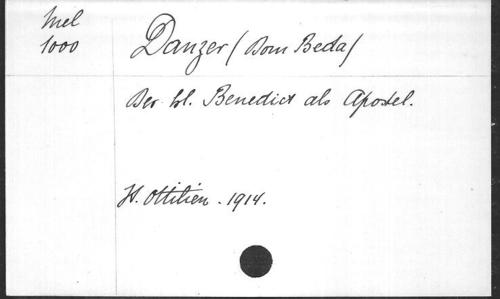 Mel
1000
Danzer (Dom Beda)
Der hl. Benedict als Apostel.
St. Ottilien. 1914.